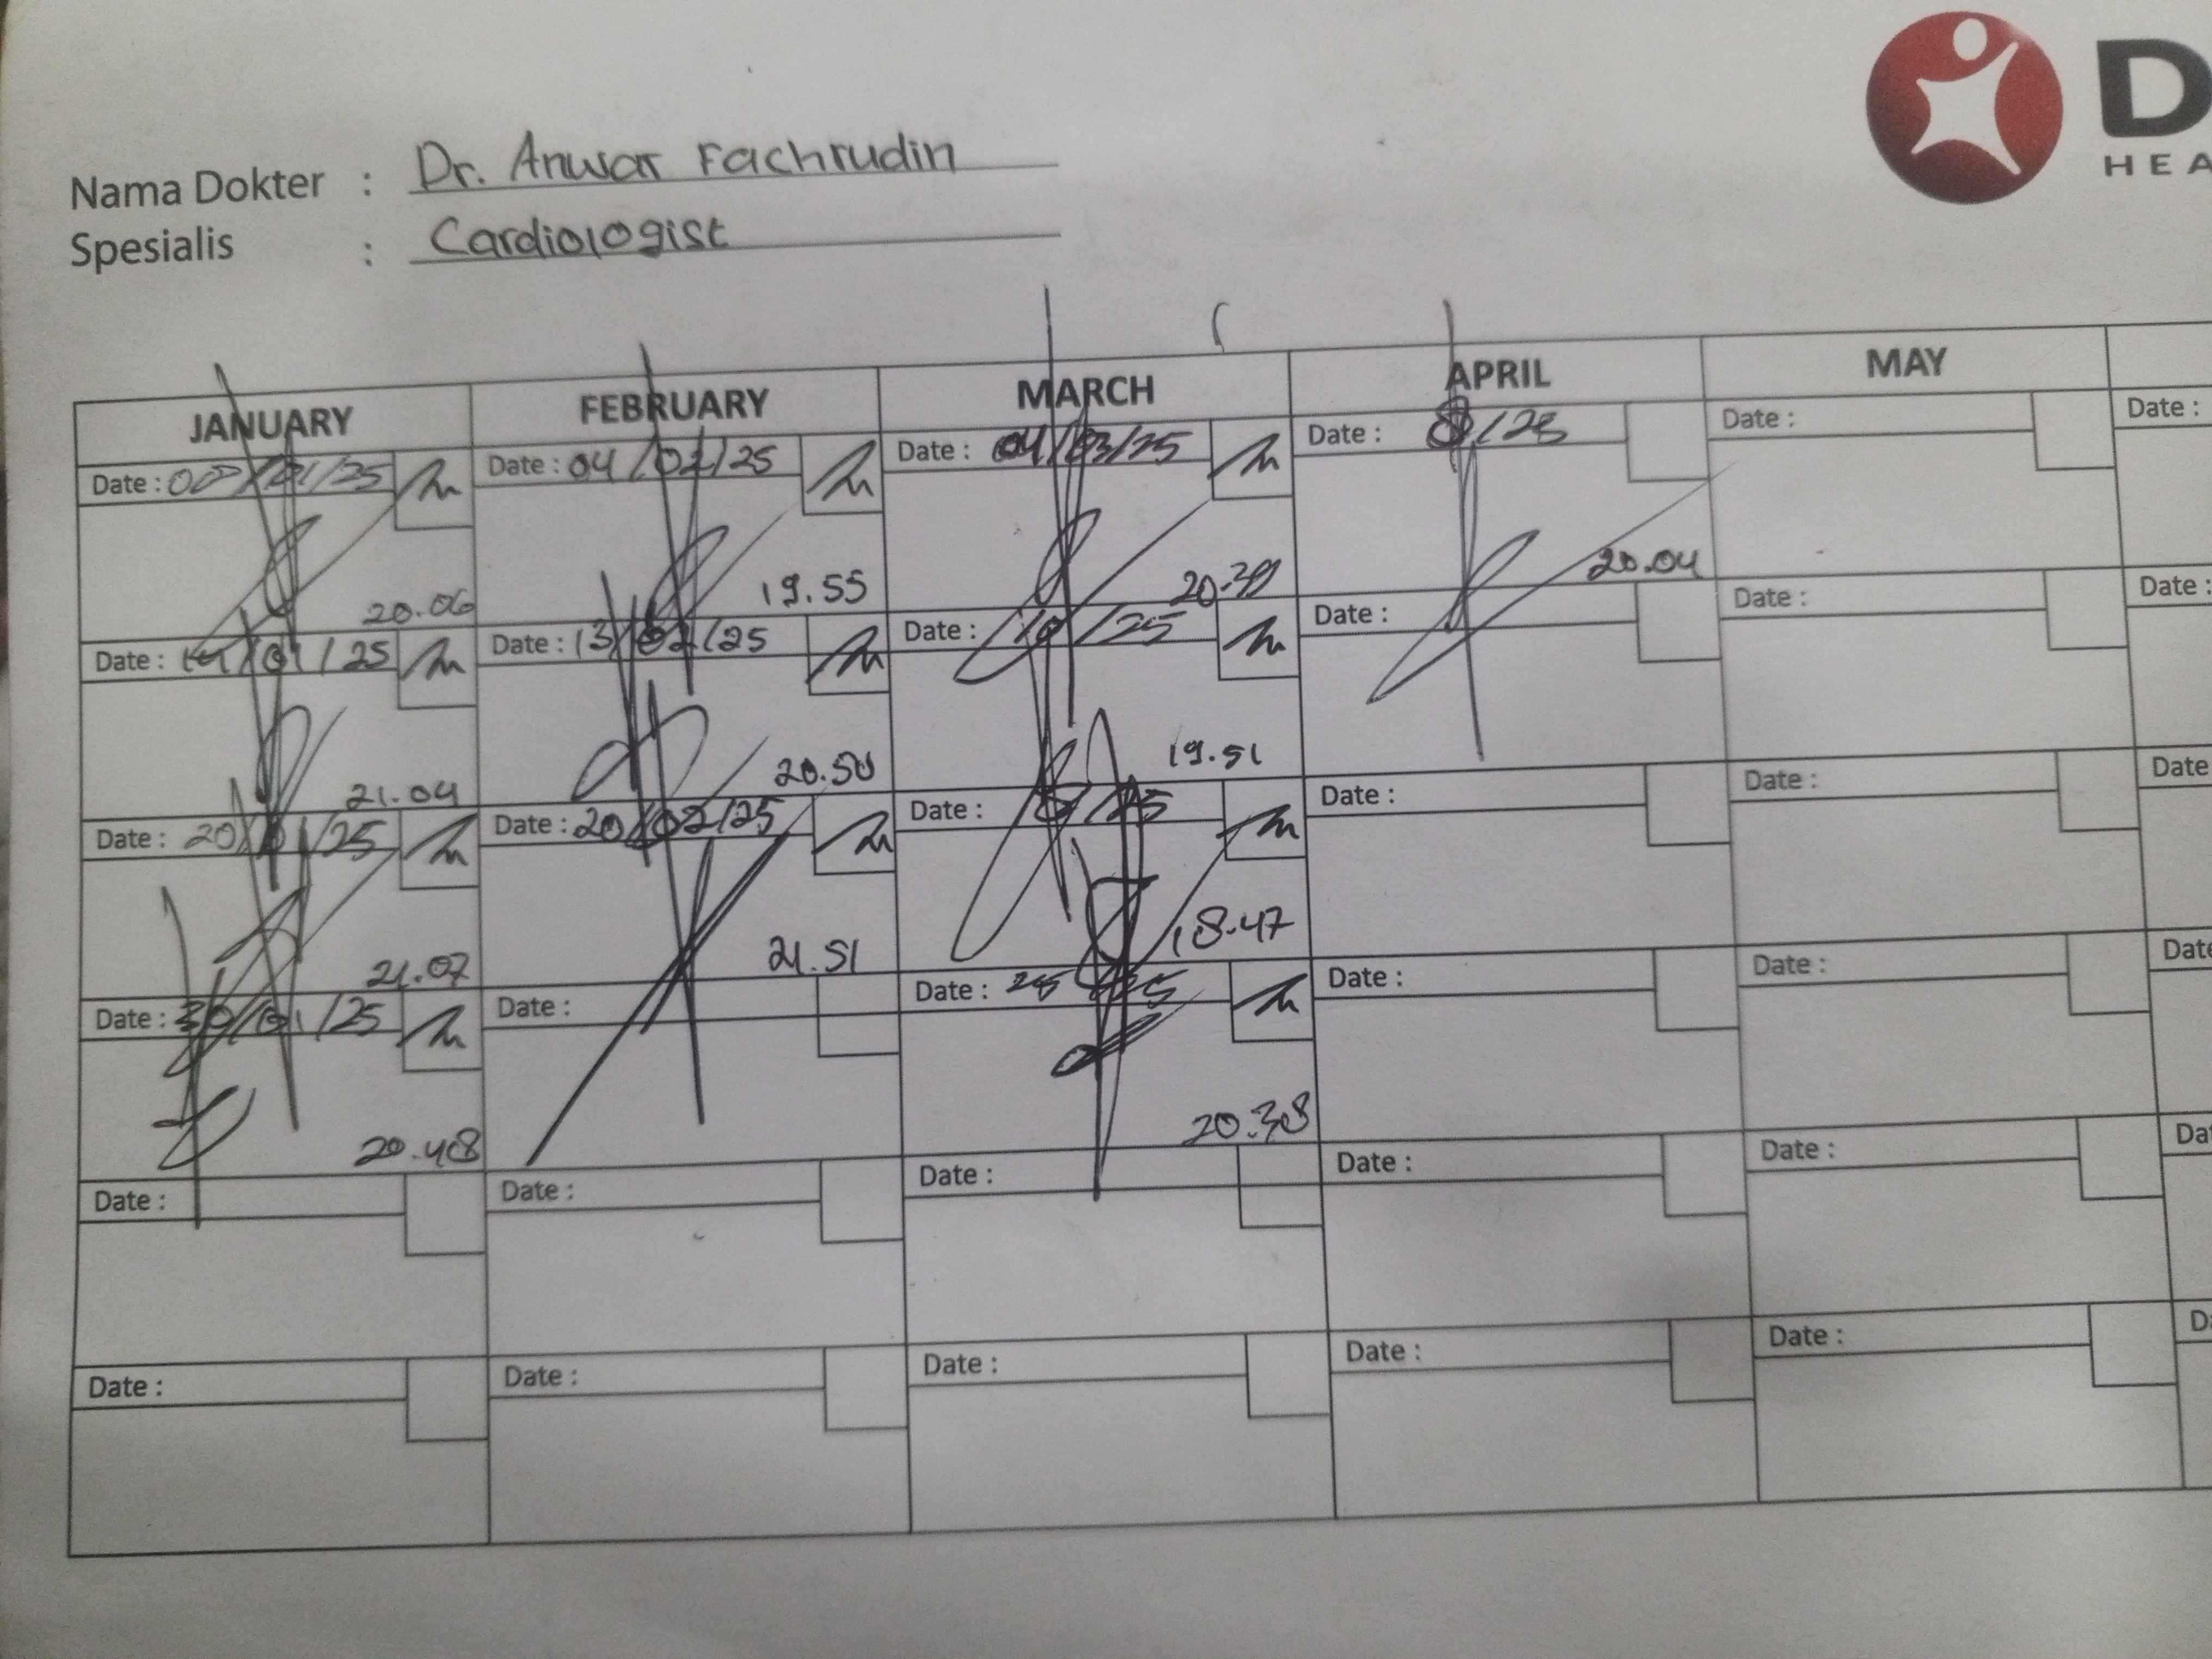 D
HEA
Nama Dokter : Dr. Anwar Fachrudin
Spesialis : Cardiologist
JANUARY FEBRUARY MARCH APRIL MAY
Date : /01/25 Date : 04/02/25 Date : 04/03/25 Date : Date : Date :
20.06 19.55 20.39 20.04
Date : 14/01/25 Date : 13/02/25 Date : /25 Date : Date : Date :
21.04 20.50 19.51
Date : 20/01/25 Date : 20/02/25 Date : /25 Date : Date : Date
21.07 21.51 18.47
Date : 30/01/25 Date : Date : 25 Date : Date : Date
20.48 20.38
Date : Date : Date : Date : Date : Da
Date : Date : Date : Date : Date : D